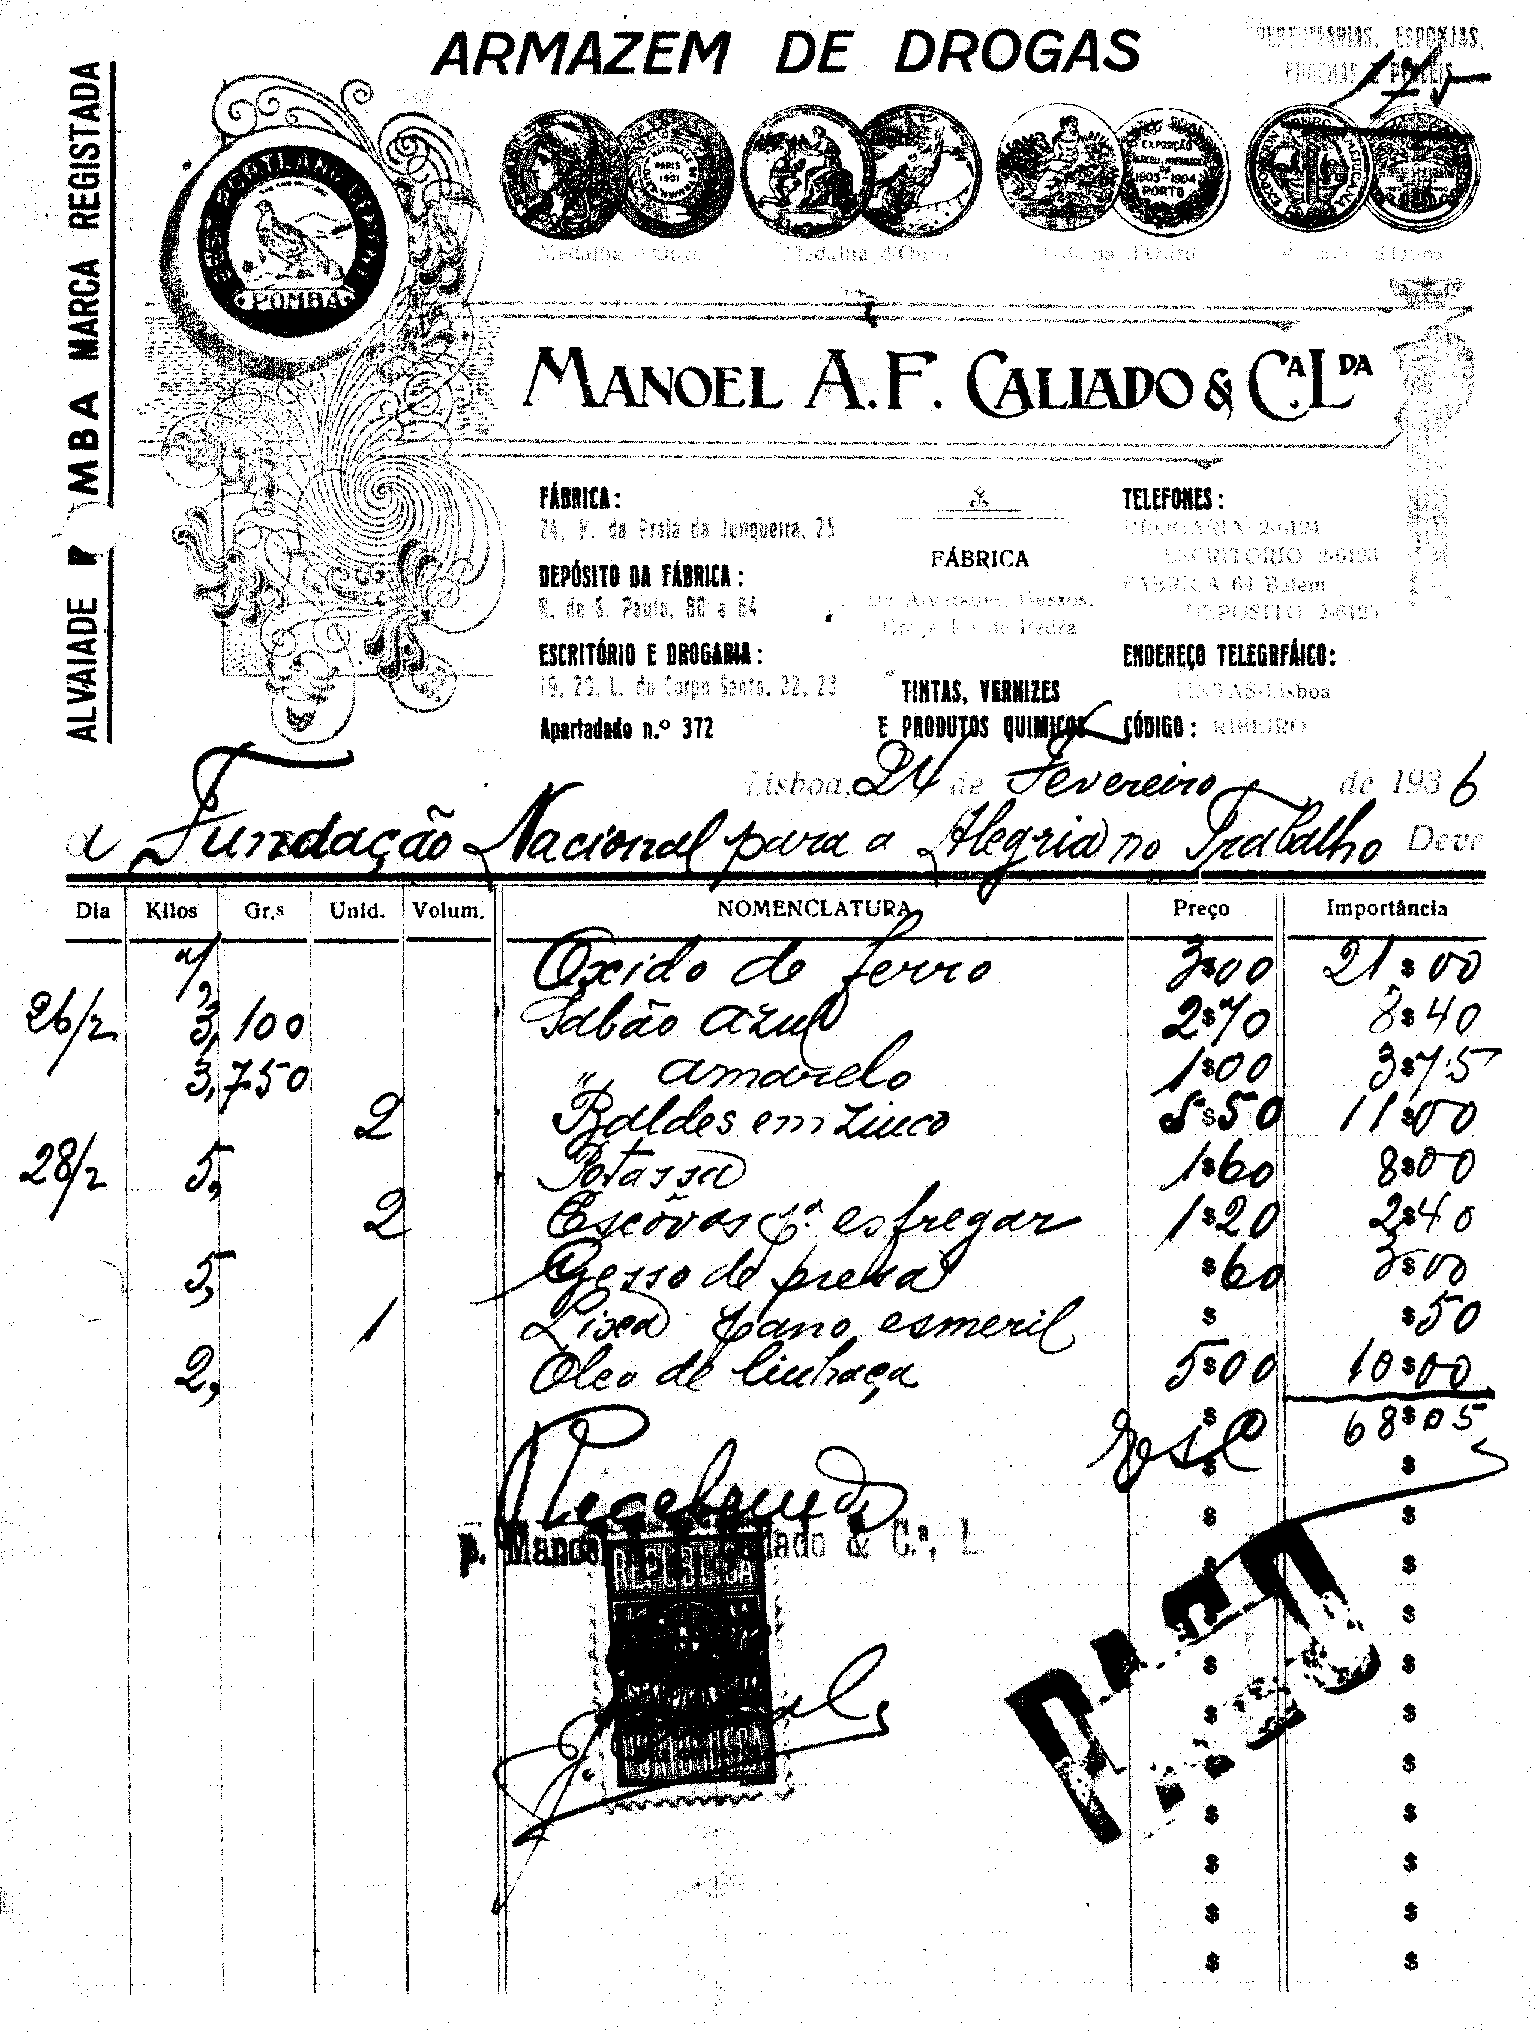 ARMAZEM DE DROGAS
PERFUMARIAS, ESPONJAS,
175
ALVAIADE P MBA MARCA REGISTADA
POMBA
PARIS
1921
EXPOSIÇÃO
1903-1904
PORTO
Medalha d'Ouro Medalha d'Ouro Medalha d'Ouro d'Ouro
MANOEL A. F. CALLADO & C.A LDA
FÁBRICA:
24, P. da Praia da Junqueira, 25
DEPÓSITO DA FÁBRICA:
R. de S. Paulo, 80 a 84
ESCRITÓRIO E DROGARIA:
19, 23, L. do Corpo Santo, 22, 23
Apartadado n.º 372
FÁBRICA
TINTAS, VERNIZES
E PRODUTOS QUIMICOS
TELEFONES:
DROGARIA 2-6124
ESCRITORIO 2-6120
FABRICA 61 Belem
DEPOSITO 2-6121
ENDEREÇO TELEGRFÁICO:
TINTAS-Lisboa
CÓDIGO: RIBEIRO
Lisboa, 24 de Fevereiro de 1936
a Fundação Nacional para a Alegria no Trabalho Deve
Dia Kilos Gr.s Unid. Volum. NOMENCLATURA Preço Importância
7, Oxido de ferro 3$00 21$00
26/2 3,100 Sabão azul 2$70 8$40
3,750 " amarelo 1$00 3$75
2 Baldes em zinco 5$50 11$00
28/2 5, Potassa 1$60 8$00
2 Escôvas p.ª esfregar 1$20 2$40
5, Gesso de presa $60 3$00
1 Lixa pano esmeril $ $50
2, Oleo de linhaça 5$00 10$00
Esc 68$05
Recebemos
p. Mano lado & C.ª, L
REPUBLICA
PORTUGUESA